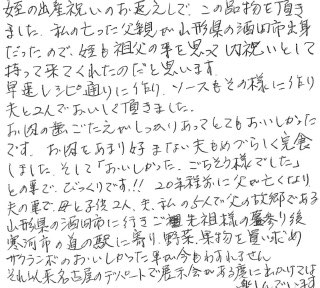 姪の出産祝いのお返えしで、この品物を頂き
ました。私の亡った父親が山形県の酒田市出身
だったので、姪も祖父の事を思って内祝いとして
持って来てくれたのだと思います。
早速レシピ通りに作り、ソースもその様に作り
夫と2人でおいしく頂きました。
お肉の歯ごたえがしっかりあってとてもおいしかった
です。お肉をあまり好まない夫もめづらしく完食
しました。そして「おいしかった。ごちそう様でした」
との事で、びっくりです!!20年程前に父が亡くなり
夫の車で、母と子供2人、夫、私の5人で父の故郷である
山形県の酒田市に行きご先祖様の墓参り後
寒河市の道の駅に寄り、野菜、果物を買い求め
サクランボのおいしかった事が今もわすれません
それ以来名古屋のデパートで展示会がある度におわりては
楽しんでいます